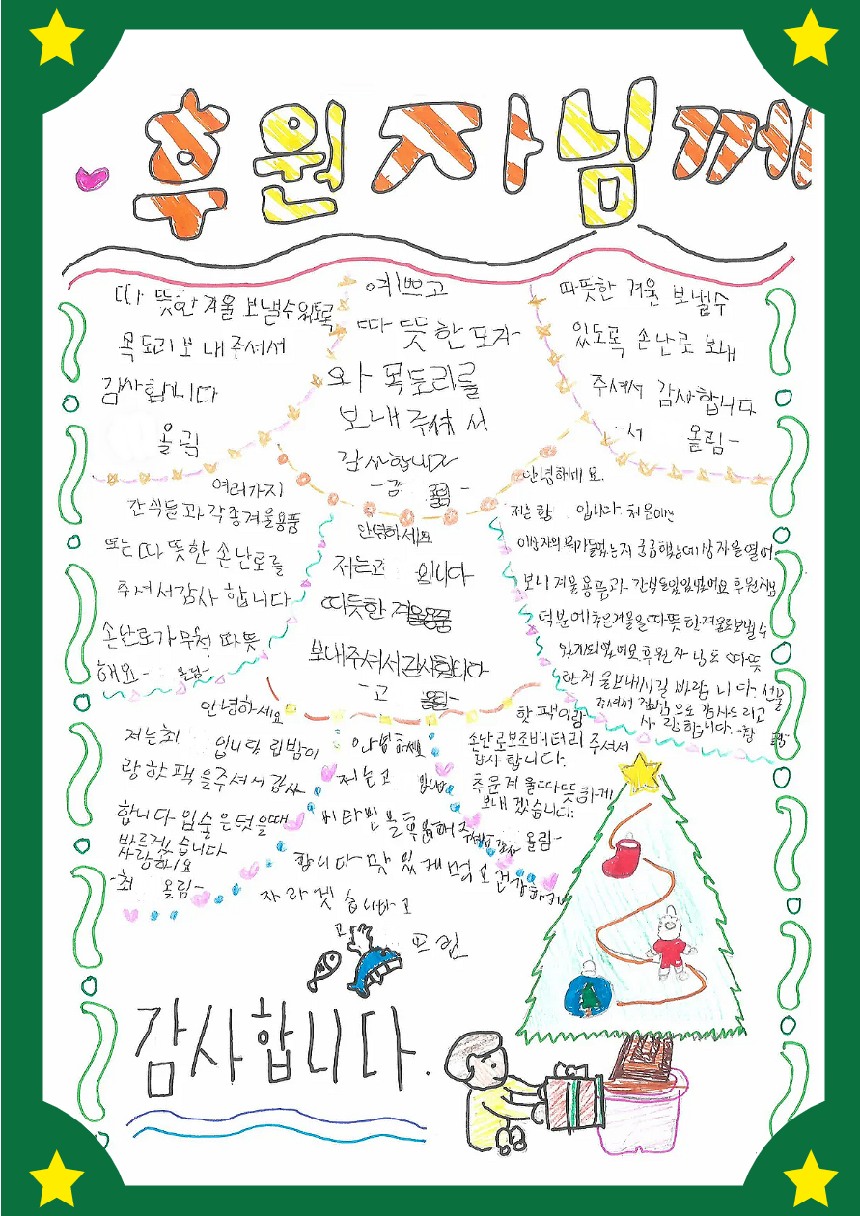 후원자님께
따뜻한 겨울 보낼수있도록
목도리보내주셔서
감사합니다
올림
예쁘고
따뜻한모자
와 목도리를
보내주셔서
감사합니다
따뜻한 겨울 보낼수
있도록 손난로 보내
주셔서 감사합니다
서 올림-
여러가지
간식들과각종겨울용품
또는따뜻한 손난로를
주셔서감사합니다
손난로가무척 따뜻
해요- 올림-
안녕하세요
저는고 입니다
따듯한겨울용품
보내주셔서감사합니다
-고
안녕하세요.
저는함 입니다. 처음에는
이상자의 뭐가들었는지 궁금했는데상자을열어
보니 겨울용품과 간식들있었어요 후원자님
덕분에추운겨울을따뜻한겨울로보낼수
있게되었어요후원자님도 따뜻
한겨울보내시길 바랍니다. 선물
주셔서 진심으로 감사드리고
사랑합니다. -함
안녕하세요
저는최 입니다. 립밤이
랑핫팩을주셔서감사
합니다입술은텃을때
바르겠습니다
사랑해요
-최 올림-
안녕하세요
저는고
비타민을후원해주셔서 감사
합니다맛있게먹고건강하게
자라겟습니다고
고
드림
핫팩이랑
손난로보조버터리 주셔서
감사합니다.
추운겨울따뜻하게
보내겠습니다.
올림-
감사합니다.